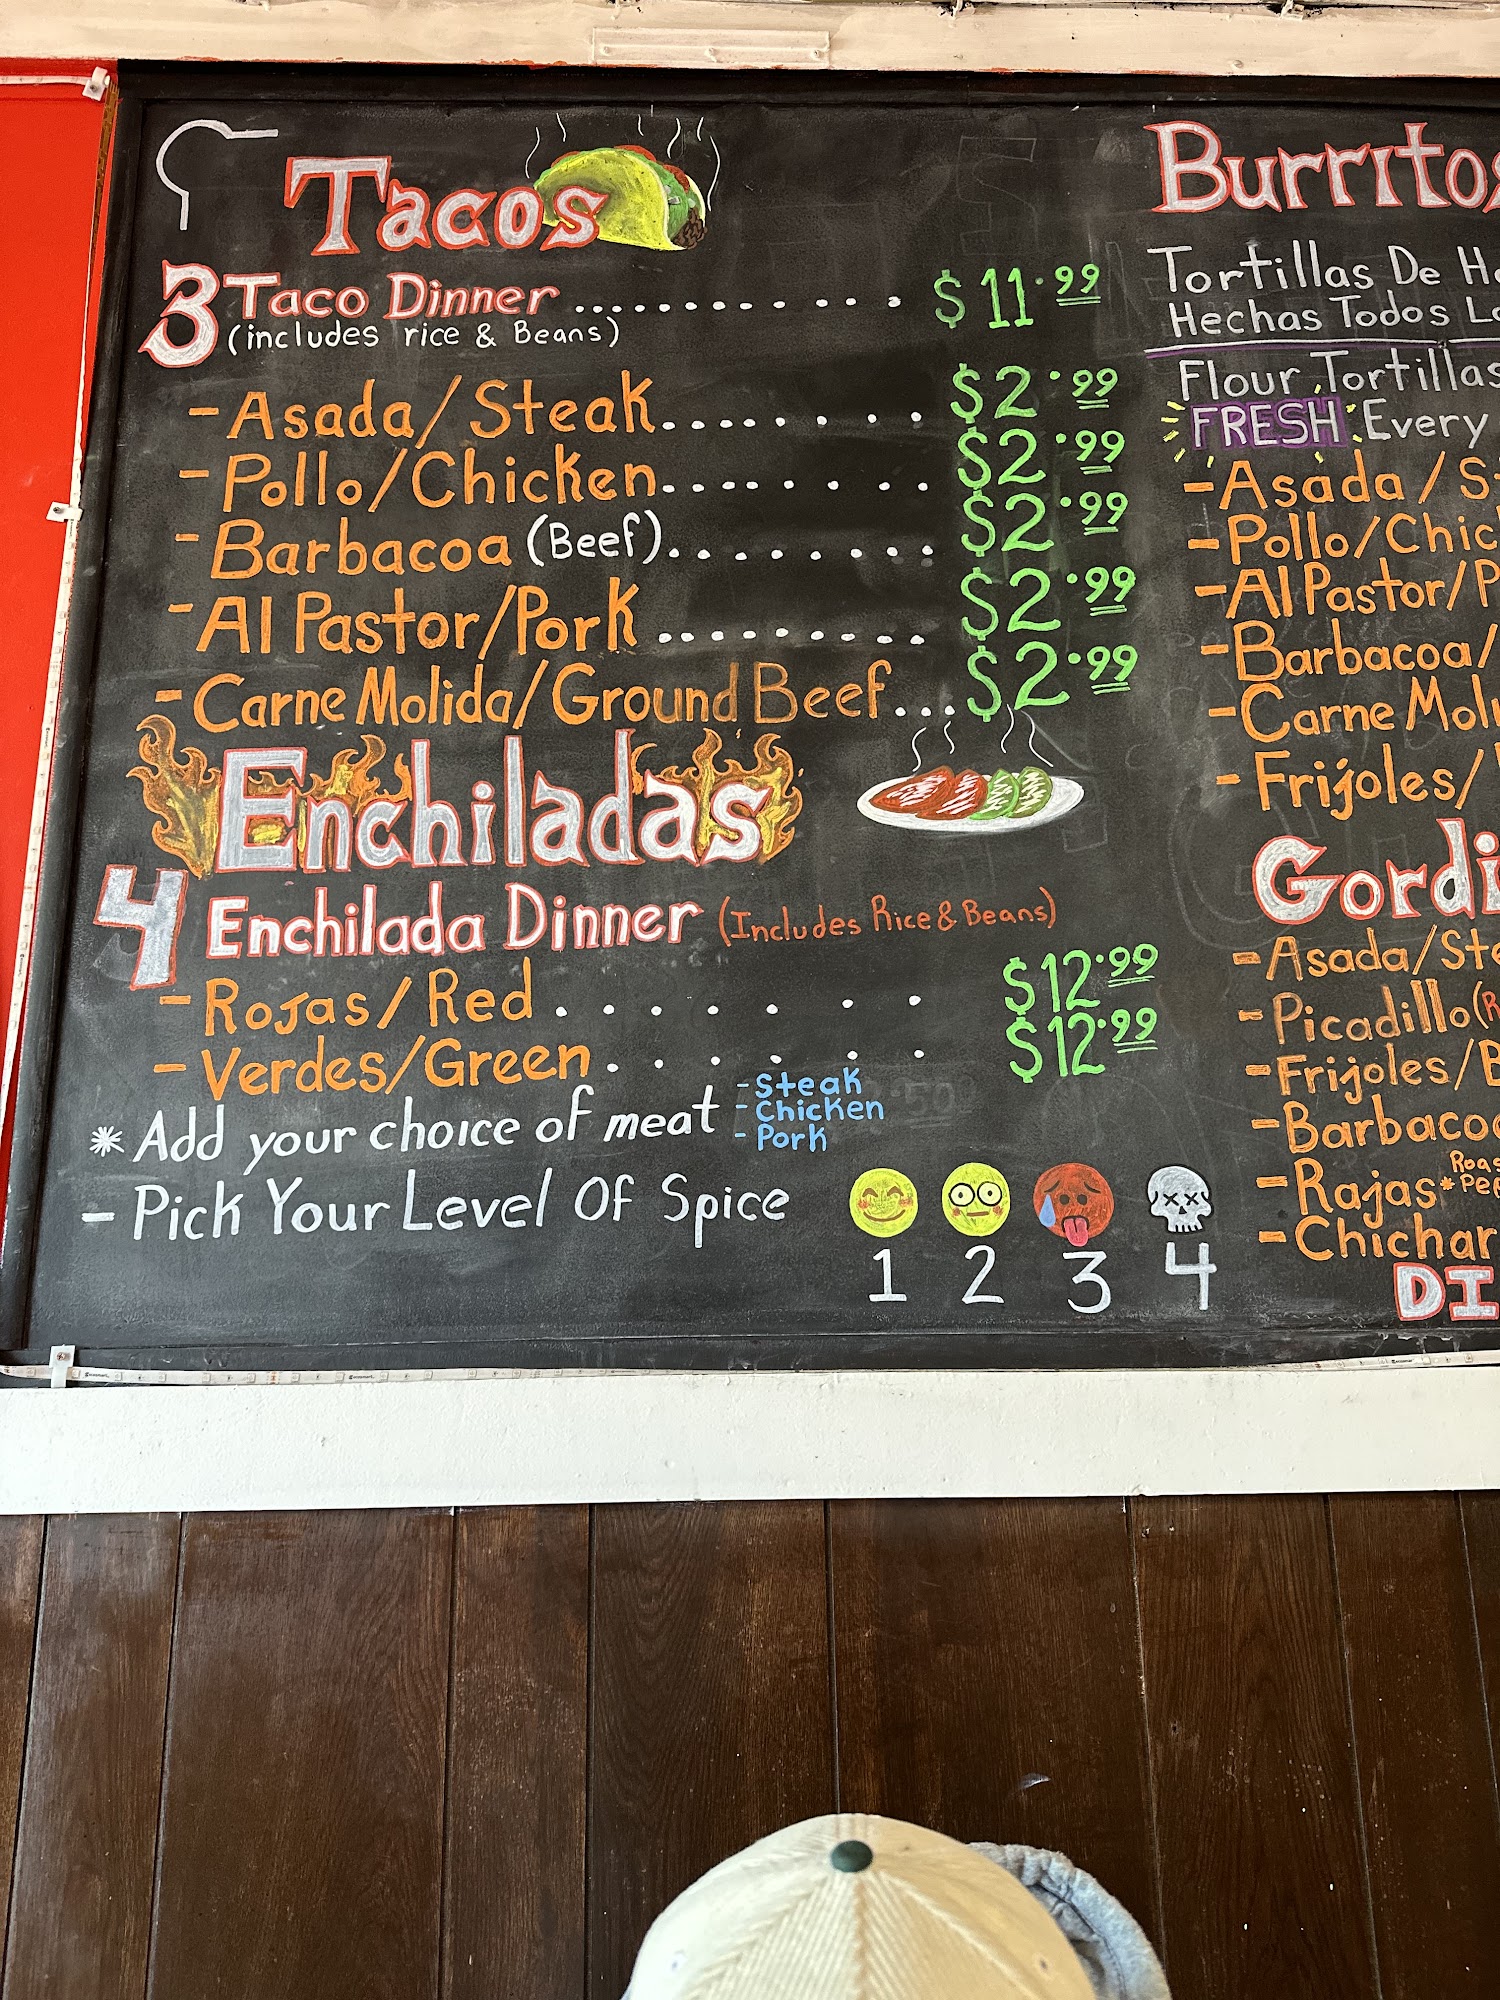 Tacos
3 Taco Dinner .............. $11.99
(includes rice & Beans)
- Asada/Steak......... $2.99
- Pollo/Chicken........ $2.99
- Barbacoa (Beef)......... $2.99
- Al Pastor/Pork ......... $2.99
- Carne Molida/Ground Beef... $2.99
Enchiladas
4 Enchilada Dinner (Includes Rice & Beans)
- Rojas/Red . . . . . . $12.99
- Verdes/Green . . . . . $12.99
* Add your choice of meat
- Steak
- Chicken
- Pork
- Pick Your Level Of Spice
1 2 3 4
Burritos
Tortillas De
Hechas Todos
Flour Tortillas
FRESH Every
- Asada/
- Pollo/
- Al Pastor/
- Barbacoa/
- Carne
- Frijoles/
- Asada/
- Picadillo
- Frijoles/
- Rajas*